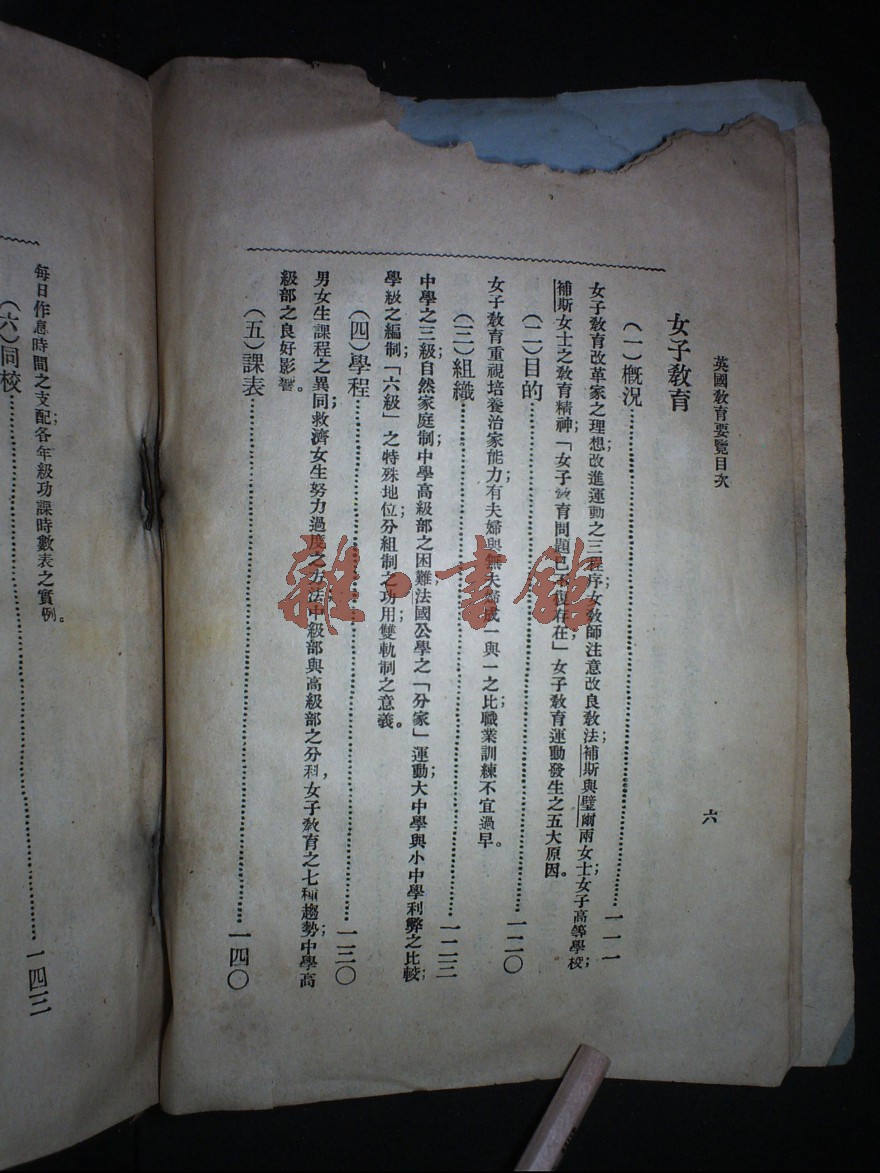 英國敎育要覽目次
六
女子敎育
(一)概況……………………一一一
女子敎育改革家之理想;改進運動之三程序;女敎師注意改良敎法;補斯與璧爾兩女士;女子高等學校;
補斯女士之敎育精神;「女子敎育問題已不復存在」;女子敎育運動發生之五大原因。
(二)目的……………………一二〇
女子敎育重視培養治家能力;有夫婦與無夫婦成一與一之比;職業訓練不宜過早。
(三)組織……………………一二三
中學之三級;自然家庭制;中學高級部之困難;法國公學之「分家」運動;大中學與小中學利弊之比較;
學級之編制;「六級」之特殊地位;分組制之功用;雙軌制之意義。
(四)學程……………………一三〇
男女生課程之異同;救濟女生努力過度之方法;中級部與高級部之分科,女子敎育之七種趨勢;中學高
級部之良好影響。
(五)課表……………………一四〇
每日作息時間之支配;各年級功課時數表之實例。
(六)同校……………………一四三
雜·書館